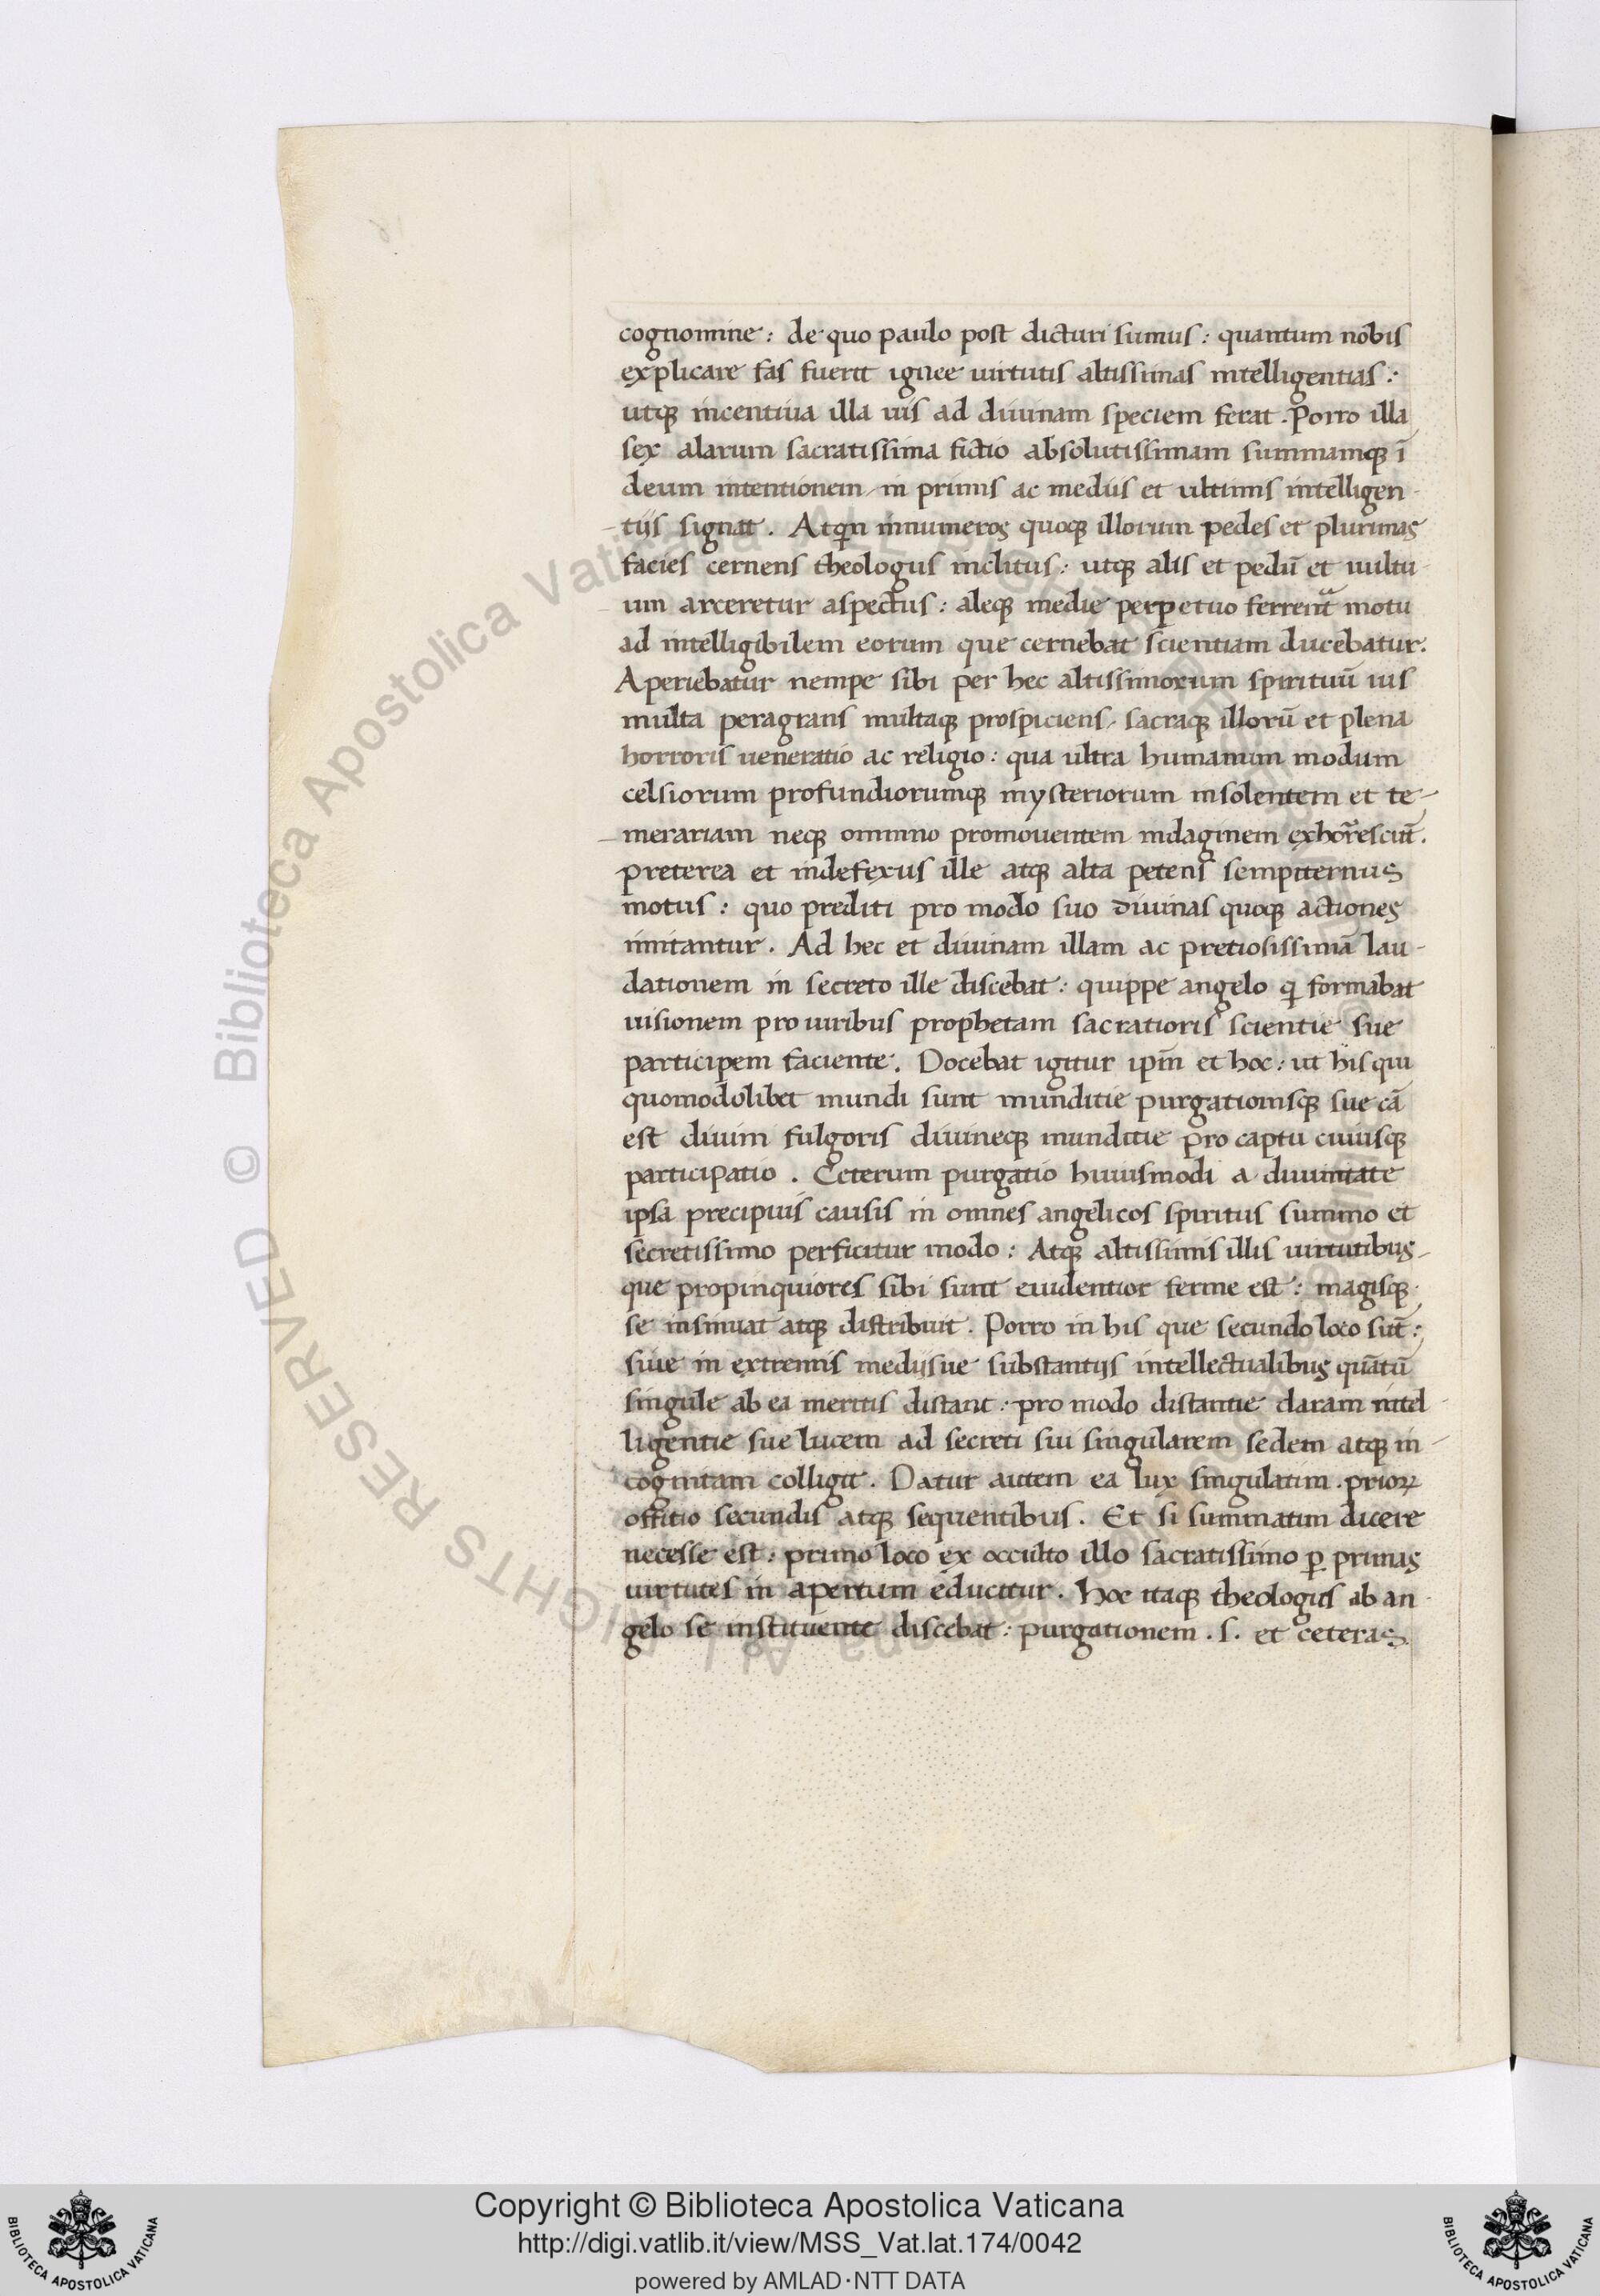 cognomine: de quo paulo post dicturi sumus: quantum nobis
explicare fas fuerit ignee uirtutis altissimas intelligentias:
utq; incentiua illa uis ad diuinam speciem ferat. Porro illa
sex alarum sacratissima fictio absolutissimam summamq; ī
deum intentionem in primis ac mediis et ultimis intelligen-
tijs signat. Atqın innumeros quoq; illorum pedes et plurimas
facies cernens theologus inclitus: utq; alis et pedū et uultu-
um arceretur aspectus: aleq; medie perpetuo ferrent̄ motu
ad intelligibilem eorum que cernebat scientiam ducebatur.
Aperiebatur nempe sibi per hec altissimorum spirituū uis
multa peragrans multaq; prospiciens, sacraq; illorū et plena
horroris ueneratio ac religio: qua ultra humanum modum
celsiorum profundiorumq; mysteriorum insolentem et te-
merariam neq; omnino promouentem indaginem exhorrescūt.
preterea et indefexus ille atq; alta petens sempiternus
motus: quo prediti pro modo suo diuinas quoq; actiones
imitantur. Ad hec et diuinam illam ac pretiosissimā lau-
dationem in secreto ille discebat: quippe angelo qi formabat
uisionem pro uiribus prophetam sacratioris scientie sue
participem faciente. Docebat igitur ipm̄ et hoc: ut his qui
quomodolibet mundi sunt munditie purgationisq; sue cā
est diuini fulgoris diuineq; munditie pro captu cuiusq;
participatio. Ceterum purgatio huiusmodi a diuinitate
ipsa precipuis causis in omnes angelicos spiritus summo et
secretissimo perficitur modo: Atq; altissimis illis uirtutibus
que propinquiores sibi sunt euidentior ferme est: magisq;
se insinuat atq; distribuit. Porro in his que secundo loco sūt:
siue in extremis medijsue substantijs intellectualibus quātū
singule ab ea meritis distant: pro modo distantie claram intel-
ligentie sue lucem ad secreti sui singularem sedem atq; in-
cognitam colligit. Datur autem ea lux singulatim. prioꝝ
offitio secundis atq; sequentibus. Et si summatim dicere
necesse est: primo loco ex occulto illo sacratissimo ꝑ primas
uirtutes in apertum educitur. Hoc itaq; theologus ab an-
gelo se instituente discebat: purgationem .s. et ceteras
Copyright © Biblioteca Apostolica Vaticana
http://digi.vatlib.it/view/MSS_Vat.lat.174/0042
powered by AMLAD·NTT DATA
BIBLIOTECA APOSTOLICA VATICANA
BIBLIOTECA APOSTOLICA VATICANA